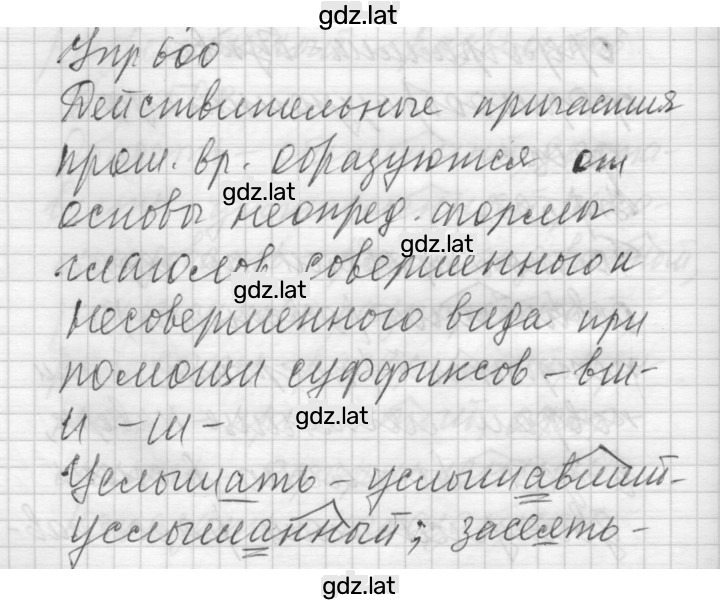 gdz.lat
Упр 600
Действительные причастия
прош. вр. образуются от
gdz.lat
основы неопред. формы
gdz.lat
глаголов совершенного и
gdz.lat
несовершенного вида при
помощи суффиксов -вш-
gdz.lat
и -ш-
Услышать - услышавший-
услышанный; засеять-
gdz.lat